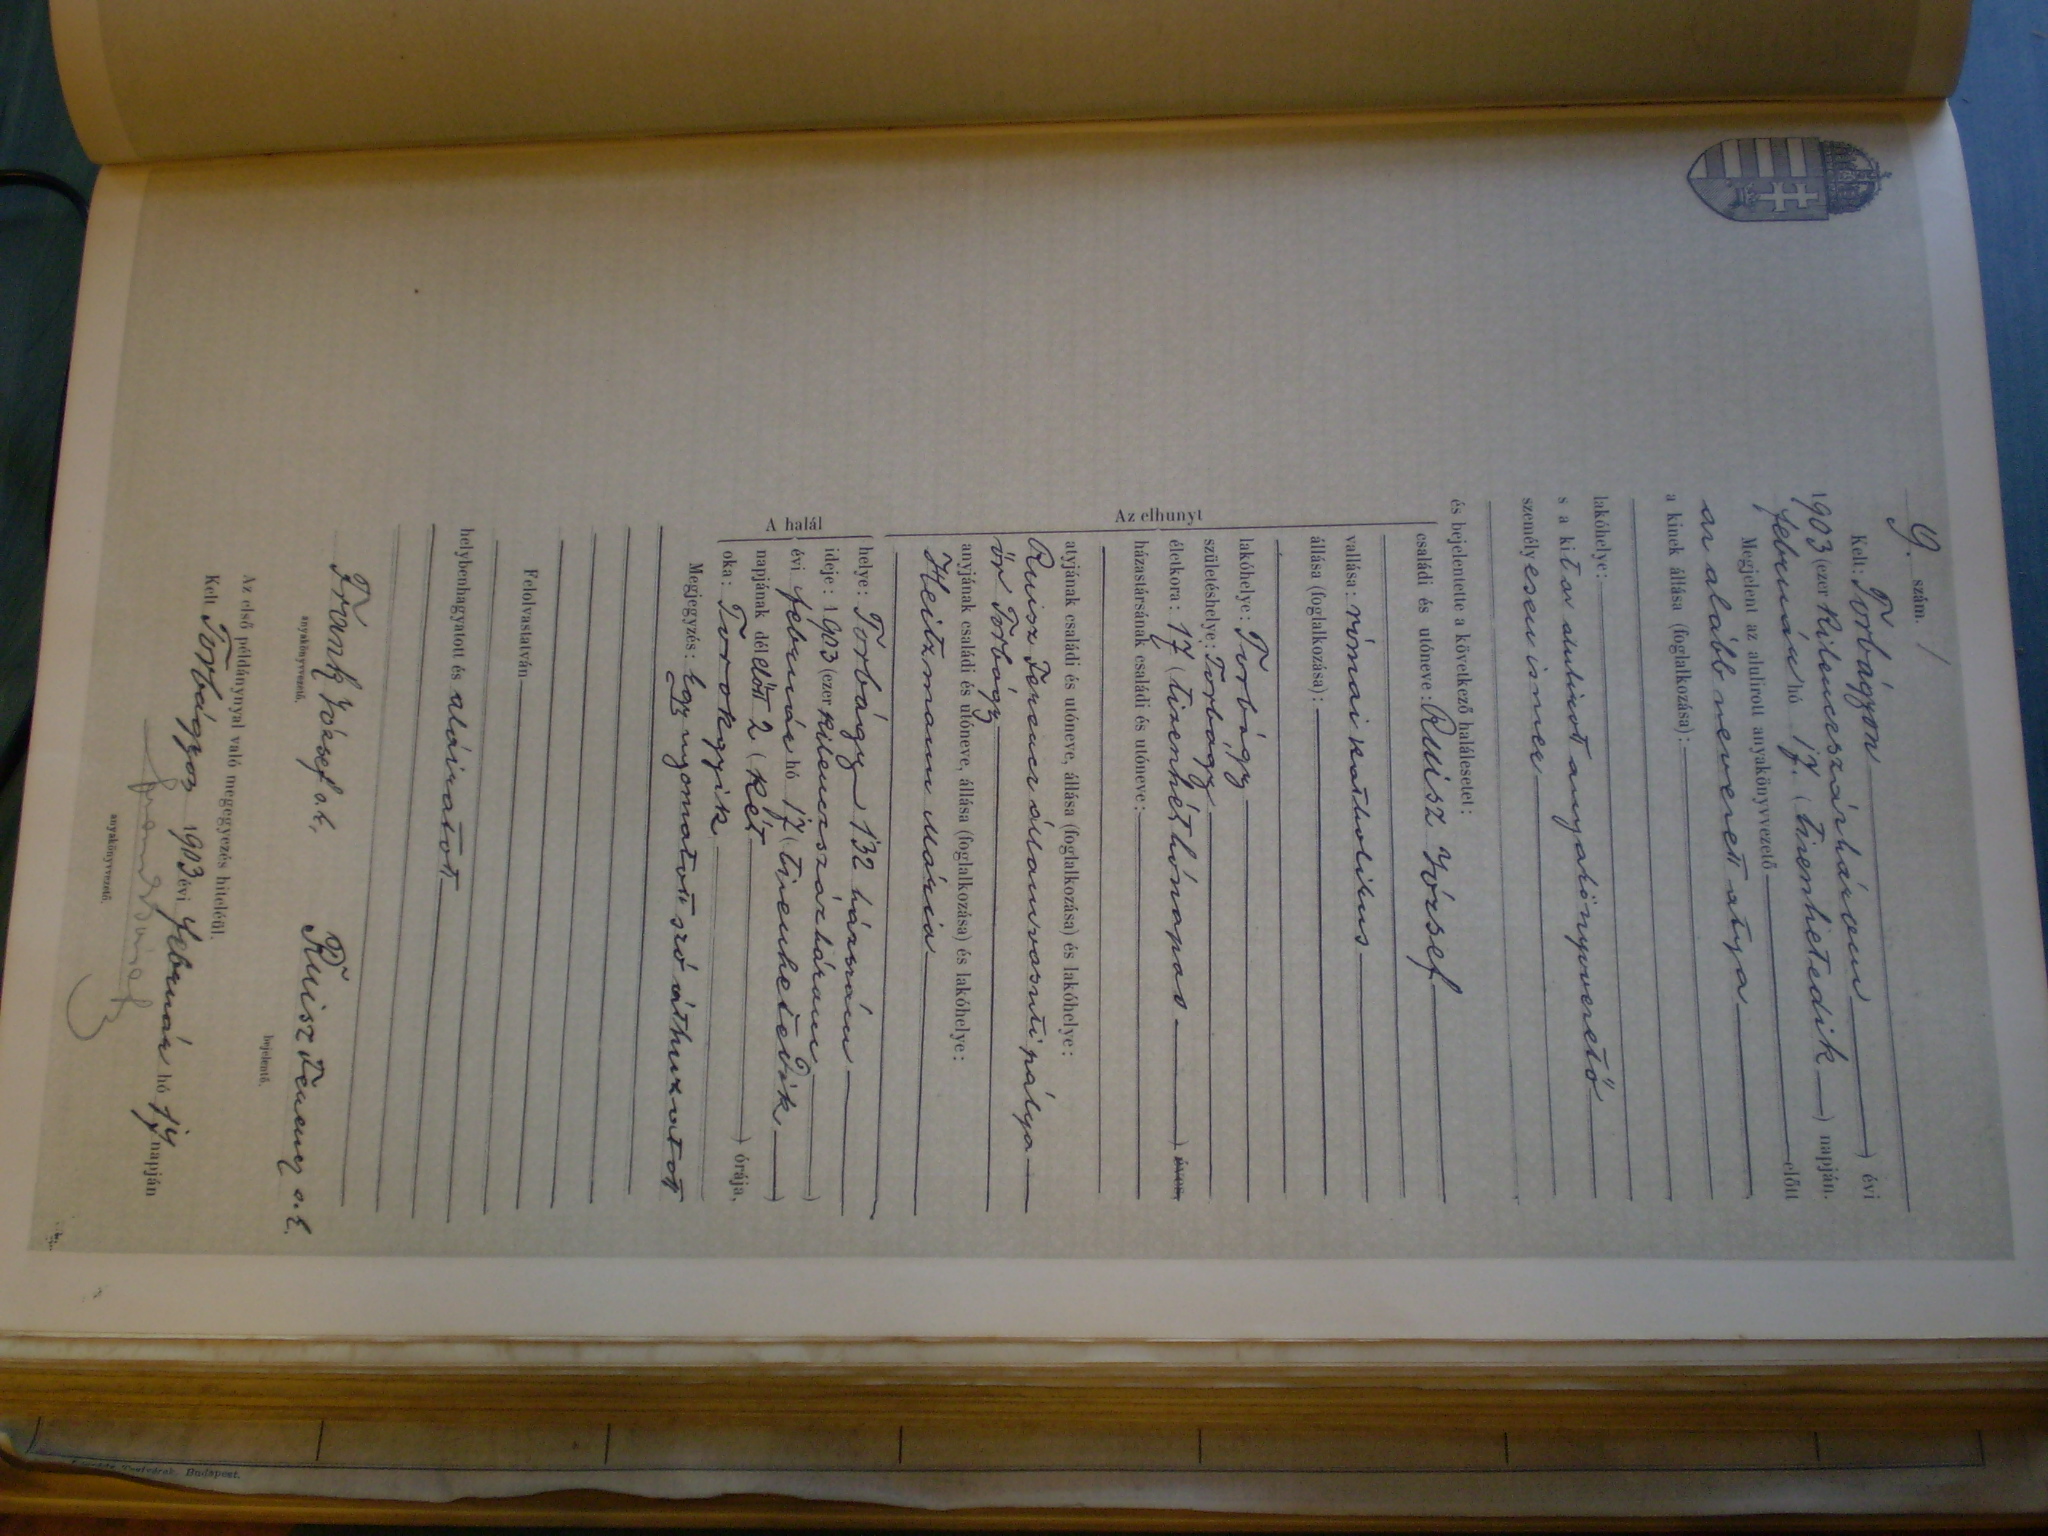 9. szám.
Kelt: Torbágyon évi
1903 (ezer kilenczszázhárom)
február hó 17. (tizenhetedik) napján.
Megjelent az alulirott anyakönyvvezető előtt
az alább nevezett atya
a kinek állása (foglalkozása):
lakóhelye:
s a kit az alulirott anyakönyvvezető
személyesen ismer
és bejelentette a következő halálesetet:
Az elhunyt
családi és utóneve: Ruisz József
vallása: római katholikus
állása (foglalkozása):
lakóhelye: Torbágy
születéshelye: Torbágy
életkora: 17 (tizenhét hónapos) éves,
házastársának családi és utóneve:
atyjának családi és utóneve, állása (foglalkozása) és lakóhelye:
Ruisz Ferencz államvasuti pálya
őr Torbágy
anyjának családi és utóneve, állása (foglalkozása) és lakóhelye:
Heitzmann Mária
A halál
helye: Torbágy 132 házszám
ideje: 1903 (ezer kilenczszázhárom)
évi február hó 17 (tizenhetedik)
napjának dél előtt 2 (két) órája,
oka: Torokgyik
Megjegyzés: Egy nyomatott szó áthuzatott
Felolvastatván
helybenhagyatott és aláiratott
Frank József s.k. Ruisz Ferencz s.k.
anyakönyvvezető. bejelentő.
Az első példánynyal való megegyezés hiteléül.
Kelt Torbágyon 1903 évi február hó 17 napján
anyakönyvvezető.
Budapest.